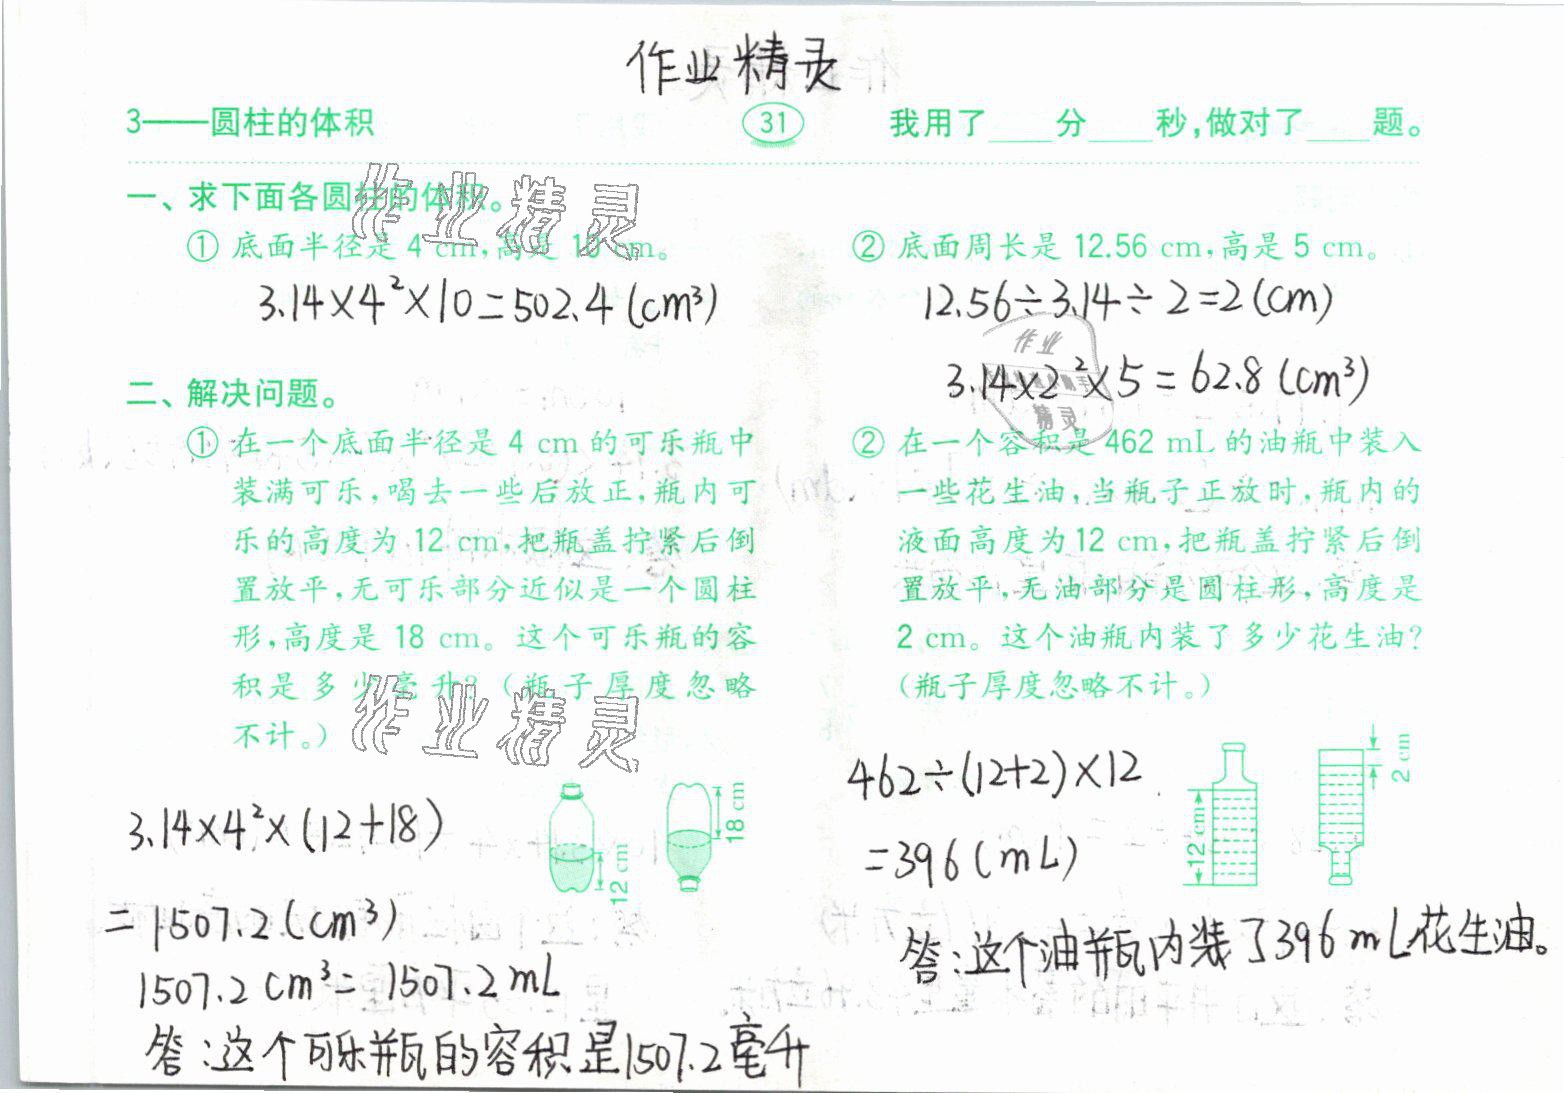 作业精灵
3——圆柱的体积
31
我用了____分____秒,做对了____题。
一、求下面各圆柱的体积。
① 底面半径是 4 cm,高是 10 cm。
3.14×4²×10=502.4(cm³)
② 底面周长是 12.56 cm,高是 5 cm。
12.56÷3.14÷2=2(cm)
3.14×2²×5=62.8(cm³)
作业精灵
作业
精灵
二、解决问题。
① 在一个底面半径是 4 cm 的可乐瓶中
装满可乐,喝去一些后放正,瓶内可
乐的高度为 12 cm,把瓶盖拧紧后倒
置放平,无可乐部分近似是一个圆柱
形,高度是 18 cm。这个可乐瓶的容
积是多少毫升?(瓶子厚度忽略
不计。)
作业精灵
12 cm
18 cm
3.14×4²×(12+18)
=1507.2(cm³)
1507.2 cm³=1507.2mL
答:这个可乐瓶的容积是1507.2毫升
② 在一个容积是 462 mL 的油瓶中装入
一些花生油,当瓶子正放时,瓶内的
液面高度为 12 cm,把瓶盖拧紧后倒
置放平,无油部分是圆柱形,高度是
2 cm。这个油瓶内装了多少花生油?
(瓶子厚度忽略不计。)
12 cm
2 cm
462÷(12+2)×12
=396(mL)
答:这个油瓶内装了396mL花生油。